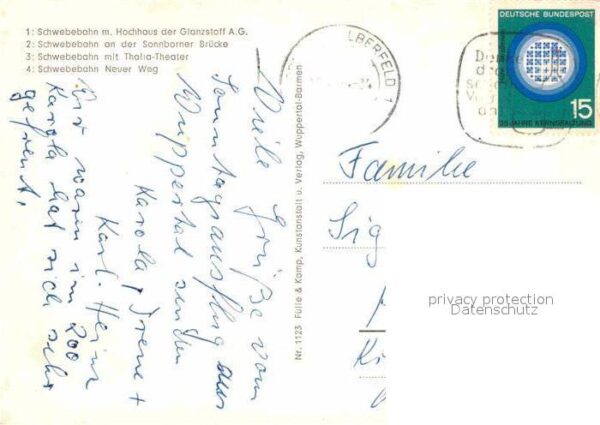 1: Schwebebahn m. Hochhaus der Glanzstoff A.G.
2: Schwebebahn an der Sonnborner Brücke
3: Schwebebahn mit Thalia-Theater
4: Schwebebahn Neuer Weg
Viele Grüße vom
Sonntagsausflug aus
Wuppertal senden
Karola, Irene +
Karl-Heinz
Wir waren im Zoo
Karola hat sich sehr
gefreut.
Nr. 1123 Fülle & Kamp, Kunstanstalt u. Verlag, Wuppertal-Barmen
LBERFELD 1
DEUTSCHE BUNDESPOST
15
25 JAHRE KERNSPALTUNG
Familie
Sig
Ki
privacy protection
Datenschutz